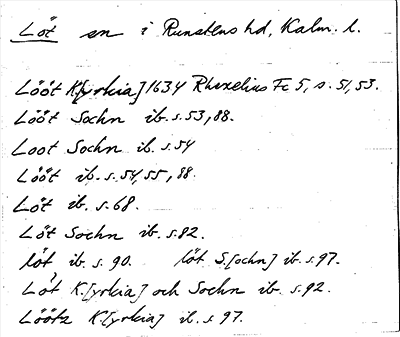 Löt sn i Runstens hd, Kalm. l.
Lööt K[yrkia] 1634 Rhezelius Fc 5, s. 51, 53.
Lööt Sochn ib. s. 53, 88.
Loot Sochn ib. s. 54
Lööt ib. s. 54, 55, 88.
Löt ib. s. 68.
Löt Sochn ib. s. 82.
löt ib. s. 90. löt S.[ochn] ib. s. 97.
Löt K.[yrkia] och Sochn ib. s. 92.
Löötz K[yrkia] ib. s. 97.